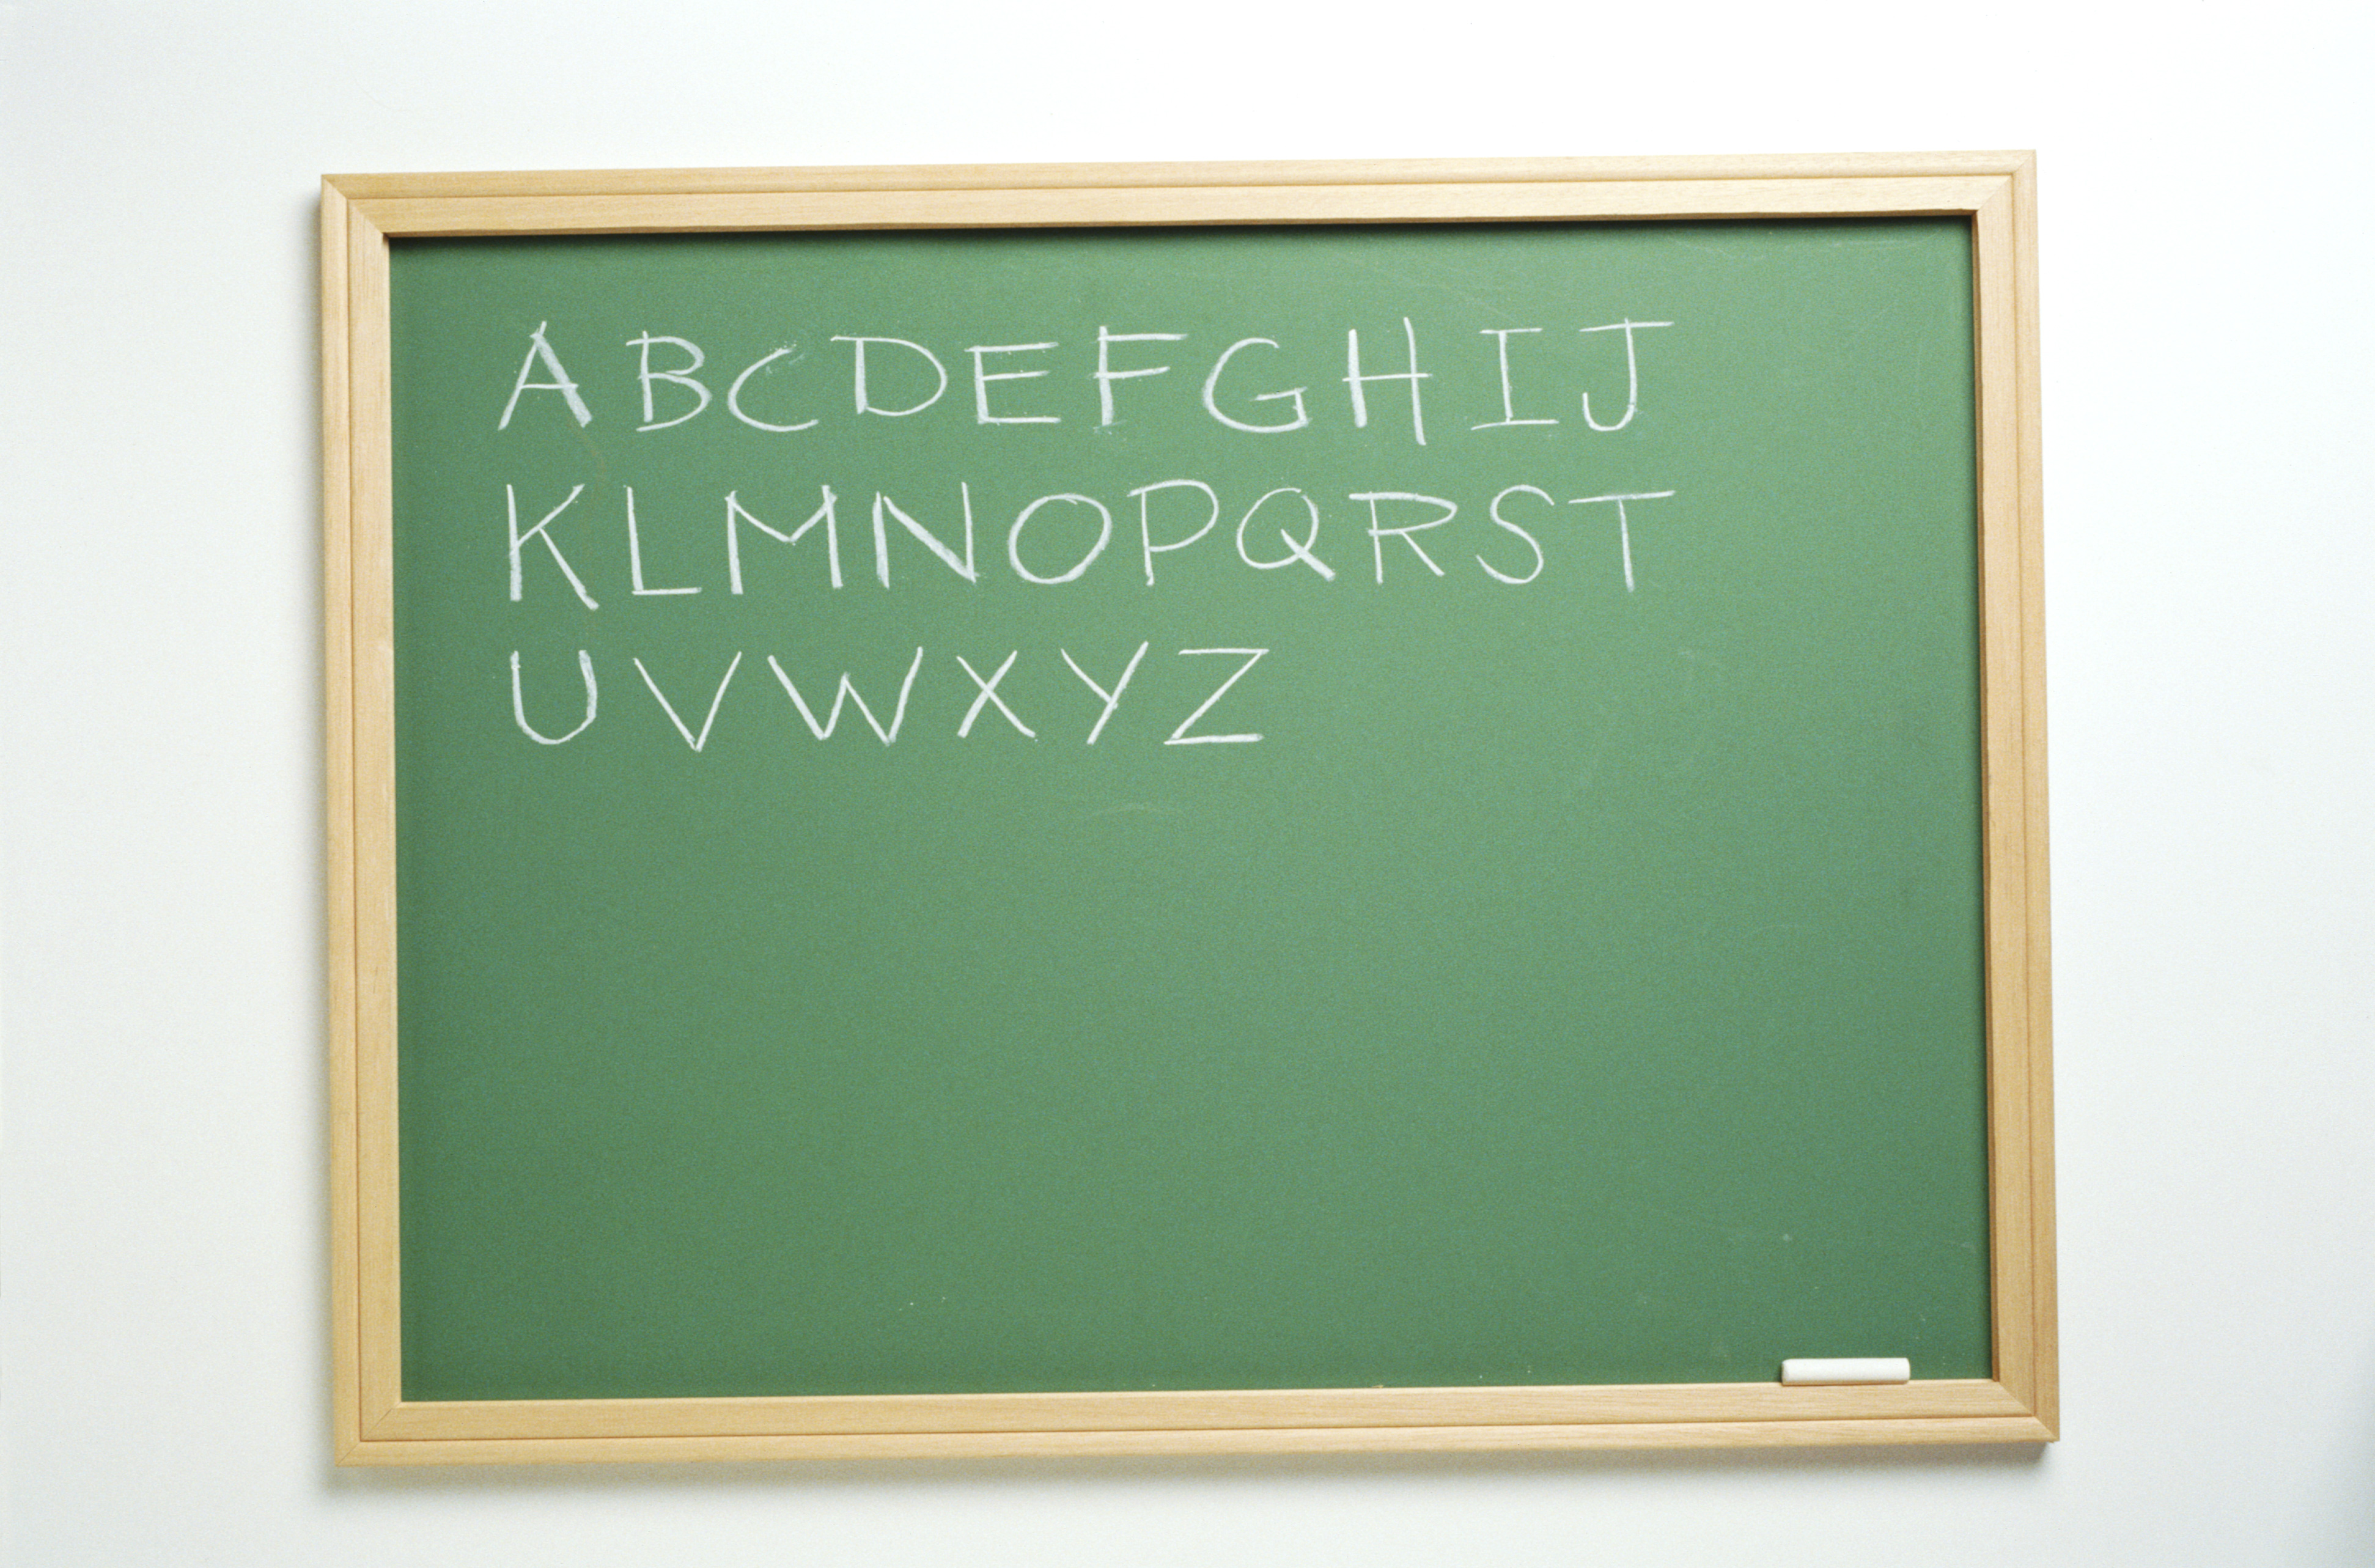 ABCDEFGHIJ
KLMNOPQRST
UVWXYZ